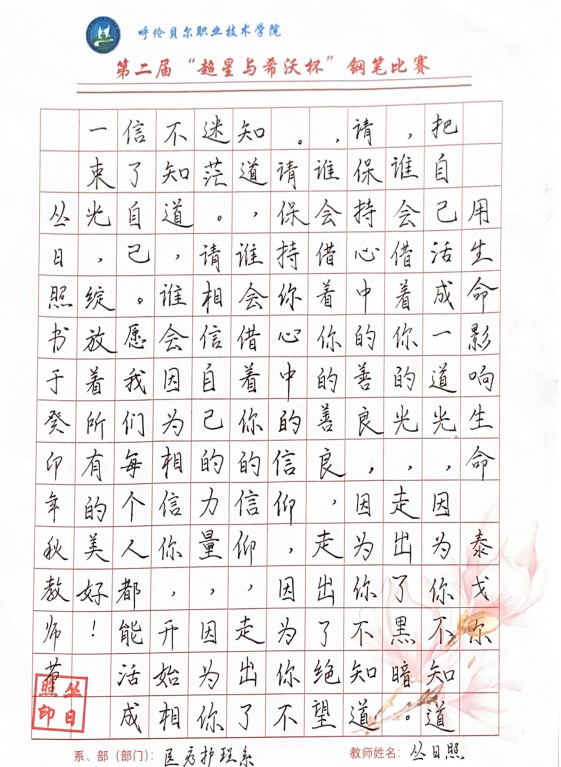 呼伦贝尔职业技术学院
第二届“超星与希沃杯”钢笔比赛
用生命影响生命 泰戈尔
把自己活成一道光，因为你不知道
，谁会借着你的光，走出了黑暗。
请保持心中的善良，因为你不知道
，谁会借着你的善良，走出了绝望
。请保持你心中的信仰，因为你不
知道，谁会借着你的信仰，走出了
迷茫。请相信自己的力量，因为你
不知道，谁会因为相信你，开始相
信了自己。愿我们每个人都能活成
一束光，绽放着所有的美好！
丛日照书于癸卯年秋教师节
丛日照印
系、部（部门）：医疗护理系
教师姓名：丛日照